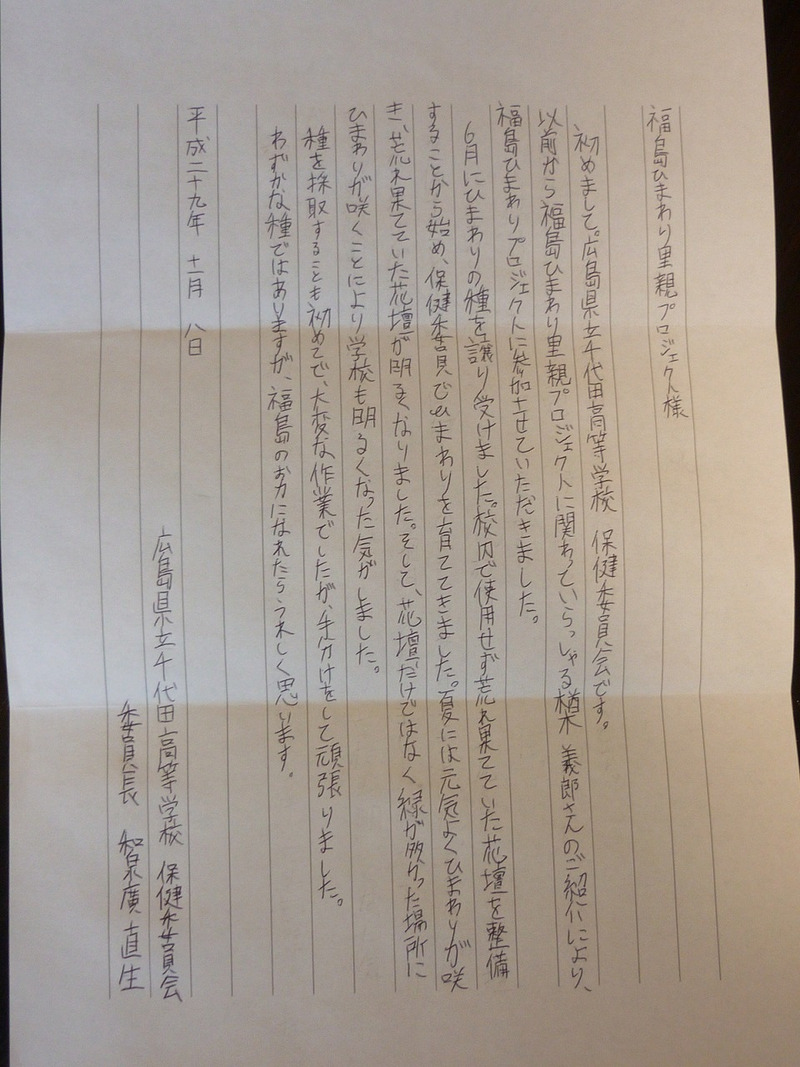 福島ひまわり里親プロジェクト様
初めまして。広島県立千代田高等学校 保健委員会です。
以前から福島ひまわり里親プロジェクトに関わっていらっしゃる楢木 義郎さんのご紹介により、
福島ひまわりプロジェクトに参加させていただきました。
6月にひまわりの種を譲り受けました。校内で使用せず荒れ果てていた花壇を整備
することから始め、保健委員でひまわりを育ててきました。夏には元気よくひまわりが咲
き、荒れ果てていた花壇が明るくなりました。そして、花壇だけではなく緑が多かった場所に
ひまわりが咲くことにより学校も明るくなった気がしました。
種を採取することも初めてで、大変な作業でしたが、手分けをして頑張りました。
わずかな種ではありますが、福島のお力になれたらうれしく思います。
平成二十九年 十一月 八日
広島県立千代田高等学校 保健委員会
委員長 智泉廣直生